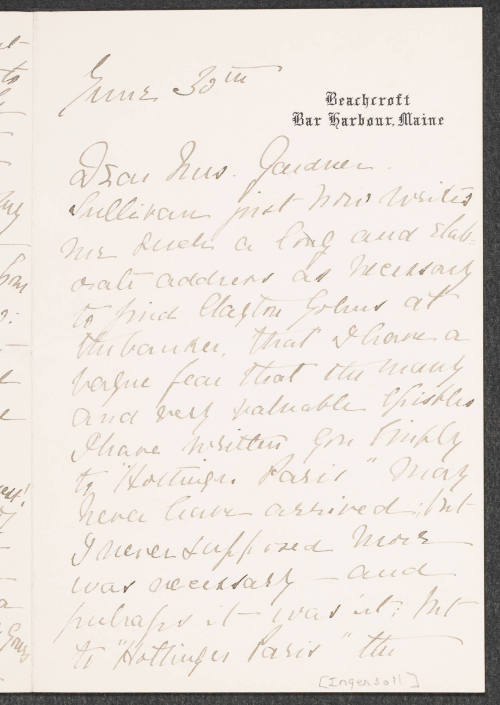 June 30th
Beachcroft
Bar Harbour, Maine
Dear Mrs. Gardner.
Sullivan just now writes
me such a long and elab-
orate address as necessary
to find Clayton Johns at
the banker, that I have a
vague fear that the many
and very valuable epistles
I have written you simply
to "Hottinger Paris" may
never have arrived; but
I never supposed more
was necessary - and
perhaps it wasn't: but
to "Hottinger Paris" the
[Ingersoll]